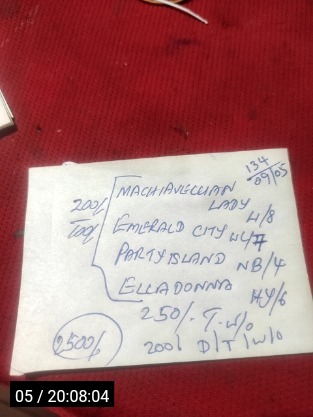 134
09/05
200/.
100/.
MACHIAVELLIAN
LADY H/8
EMERALD CITY H4/7
PARTY ISLAND NB/4
ELLADONNA HY/6
250/. T-W/O
200/ D/T/W/O
2500/.
05 / 20:08:04